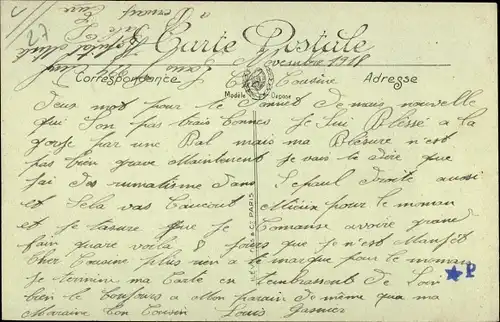 27
Carte Postale
Novembre 1918
Correspondance
Adresse
Modèle Déposé
Cousine
Deux mot pour te donnet de mais nouvelle
qui son pas trais bonnes je sui Bléssé a la
gorge par une Bal mais ma Blésure n'est
pas bien grave Maintenent je vais te dire que
jai des rumatisme dans l'epaul droite aussi
et Sela vas Baucout Mieux pour le moman
et je tasure que je Comanse avoire grand
fain quare voila 8 jours que je n'est Manjét
Cher Cousine plus rien a te marque pour le moman
je termine ma Carte en tembrassent de Loin
bien le bonjours a Mon parain de même qua ma
Maraine Ton Cousin Louis
PARIS
P